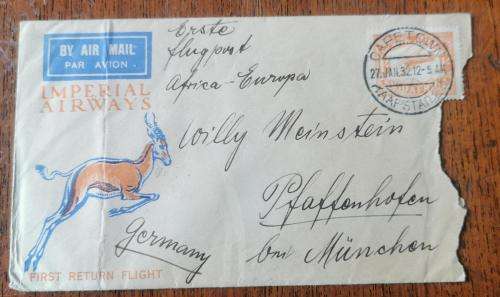 BY AIR MAIL
PAR AVION
IMPERIAL
AIRWAYS
Erste
flugpost
Africa-Europa
CAPE TOWN
27. JAN. 32. 12-5 AM
KAAPSTAD
Willy Meinstein
Pfaffenhofen
bei München
Germany
FIRST RETURN FLIGHT